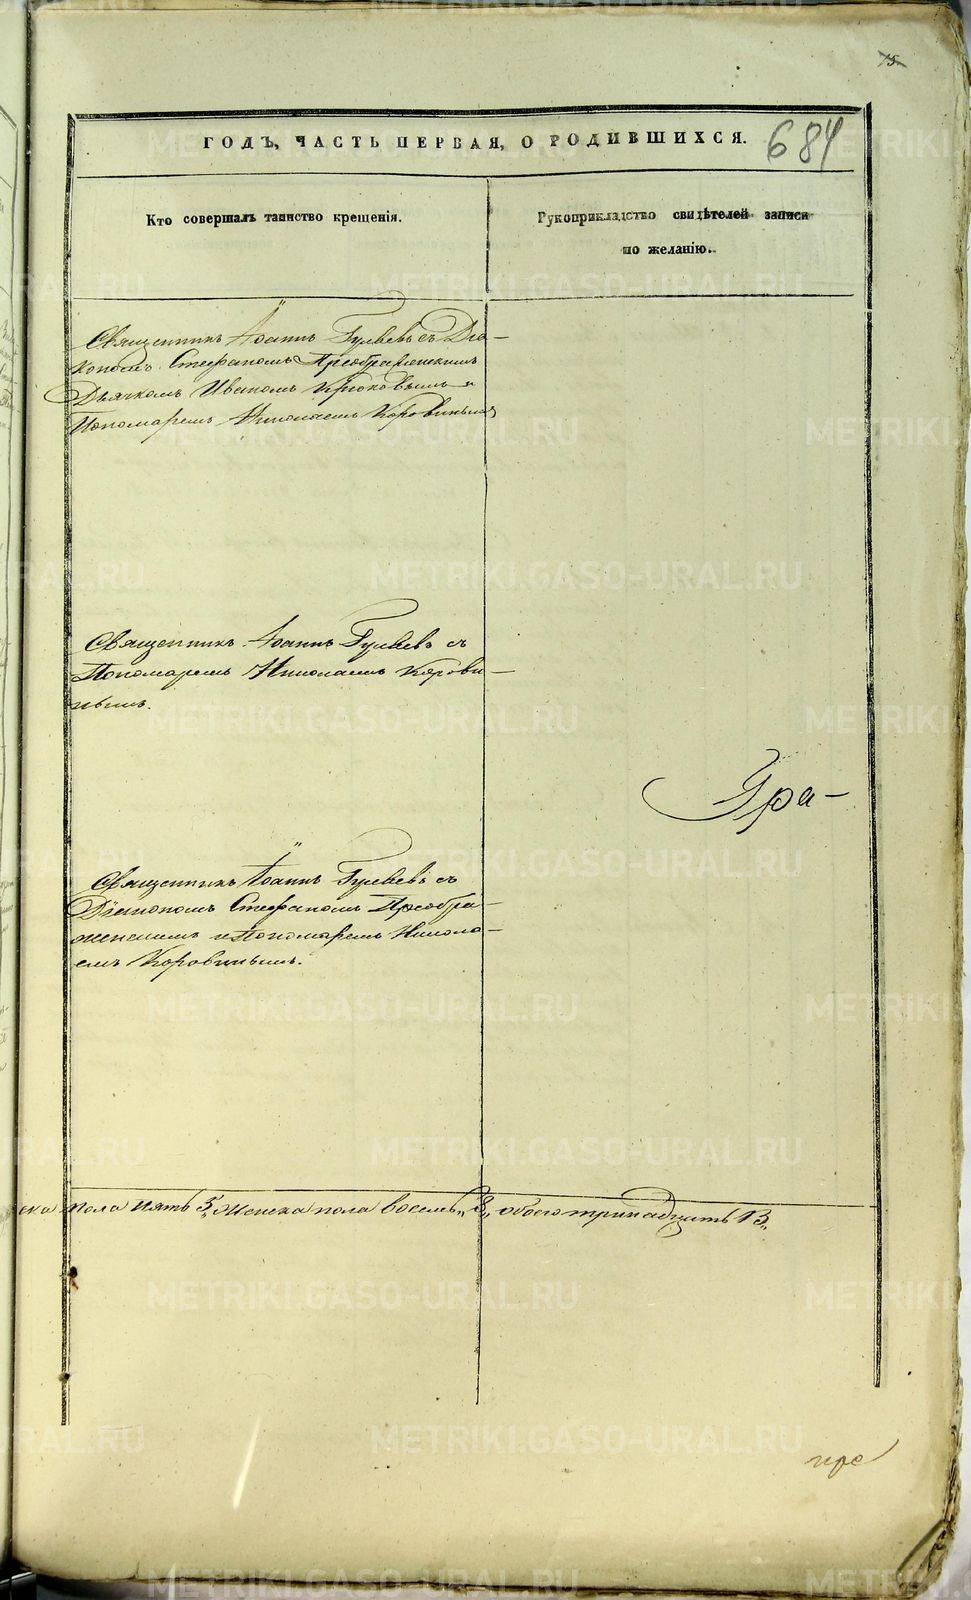 15
684
ГОДЪ, ЧАСТЬ ПЕРВАЯ, О РОДИВШИХСЯ.
Кто совершалъ таинство крещенія.
Рукоприкладство свидѣтелей записи
по желанію.
Священникъ Іоаннъ Гуляевъ съ Діа-
кономъ Стефаномъ Преображенскимъ
Дьячкомъ Иваномъ Крюковымъ и
Пономаремъ Николаемъ Коровинымъ
Священникъ Іоаннъ Гуляевъ съ
Пономаремъ Николаемъ Корови-
нымъ.
Гра-
Священникъ Іоаннъ Гуляевъ съ
Діакономъ Стефаномъ Преобра-
женскимъ и Пономаремъ Никола-
емъ Коровинымъ.
ска пола пять 5, женска пола восемь „8„ обоего тринадцать 13„
пре
METRIKI.GASO-URAL.RU